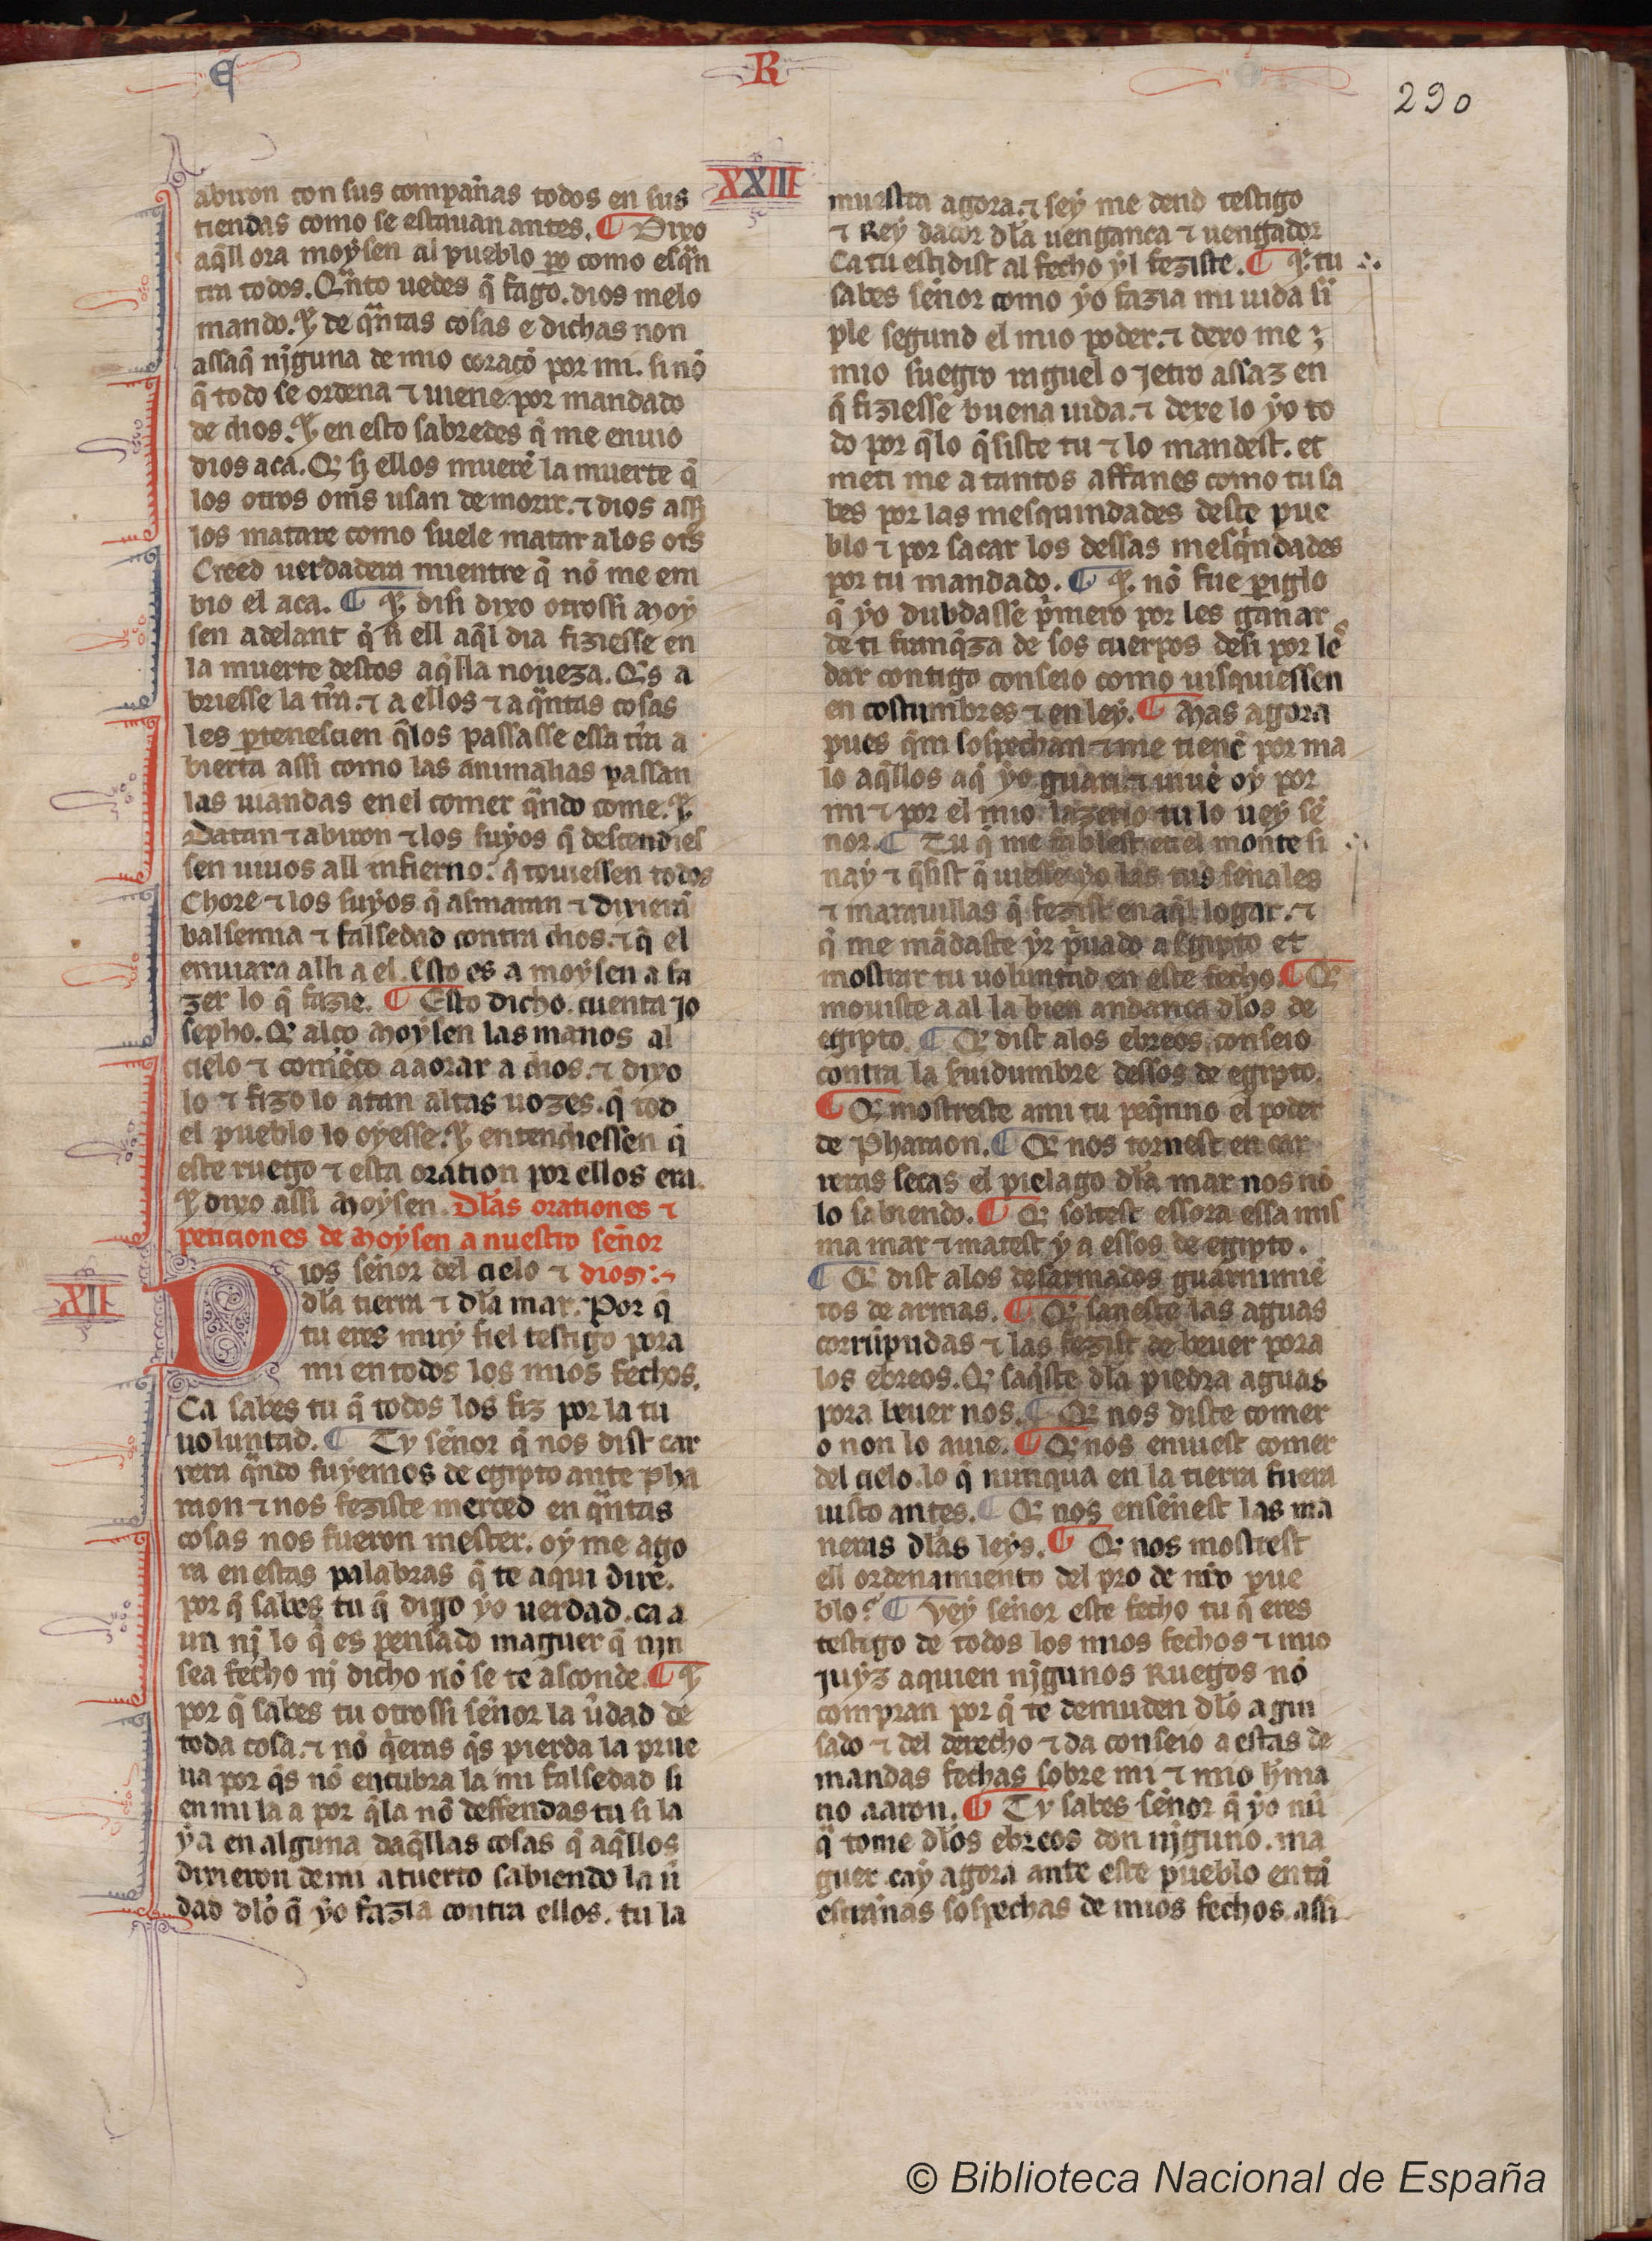 R
290
XXIII
abiron con sus compannas todos en sus
tiendas como se estauan antes. ¶ Dixo
aq̃ll ora moysen al pueblo ꝑo como esq̃n
tra todos. Qñto uedes q̃ fago. dios melo
mando. ⁊ de q̃ntas cosas e dichas non
assaq̃ njguna de mio coraçõ por mi. si nõ
q̃ todo se ordena ⁊ uiene por mandado
de dios. ⁊ en esto sabredes q̃ me enuio
dios aca. Q̃ si ellos muerẽ la muerte q̃
los otros om̃s usan de morir. ⁊ dios assi
los matare como suele matar alos ot̃s
Creed uerdadera mientre q̃ nõ me em
bio el aca. ¶ ⁊ disi dixo otrossi moy
sen adelant q̃ si ell aq̃l dia fiziesse en
la muerte destos aq̃lla noueza. Q̃s a
briesse la tr̃ra. ⁊ a ellos ⁊ a q̃ntas cosas
les ꝑtenescien q̃los passasse essa tr̃ra a
bierta assi como las animalias passan
las uiandas en el comer q̃ndo come. ⁊
Datan ⁊ abiron ⁊ los suyos q̃ descendies
sen uiuos all infierno. q̃ touiessen todos
Chore ⁊ los suyos q̃ asmaran ⁊ dixierã
balsemia ⁊ falsedad contra dios. ⁊ q̃ el
enuiara alli a el. Esto es a moysen a fa
zer lo q̃ fazie. ¶ Esto dicho. cuenta jo
sepho. Q̃ alço moysen las manos al
cielo ⁊ comẽço a aorar a dios. ⁊ dixo
lo ⁊ fizo lo atan altas uozes. q̃ tod
el pueblo lo oyesse. ⁊ entendiessen q̃
este ruego ⁊ esta oration por ellos era.
⁊ dixo assi moysen. Dl̃as orationes ⁊
peticiones de moysen a nuestro señor
dios
XII
Dios señor del cielo ⁊
dl̃a tierra ⁊ dl̃a mar. Por q̃
tu eres muy fiel testigo pora
mi en todos los mios fechos.
Ca sabes tu q̃ todos los fiz por la tu
uoluntad. ¶ Ty señor q̃ nos dist car
rera q̃ndo fuyemos de egipto ante pha
raon ⁊ nos feziste merced en q̃ntas
cosas nos fueron mester. oy me ago
ra en estas palabras q̃ te aqui dirẽ.
por q̃ sabes tu q̃ digo yo uerdad. ca a
un nj lo q̃ es pensado maguer q̃ nin
sea fecho nj dicho nõ se te asconde. ¶ ⁊
por q̃ sabes tu otrossi señor la ũdad de
toda cosa. ⁊ nõ q̃eras q̃s pierda la prue
ua por q̃s nõ encubra la mi falsedad si
en mi la a por q̃la nõ deffendas tu si la
ya en alguna daq̃llas cosas q̃ aq̃llos
dixieron de mi a tuerto sabiendo la ũ
dad dl̃o q̃ yo fazia contra ellos. tu la
muestra agora. ⁊ sey me dend testigo
⁊ Rey dador dl̃a uengança ⁊ uengador
Ca tu estidist al fecho yl feziste. ¶ ⁊ tu
sabes señor como yo fazia mi uida si
ple segund el mio poder. ⁊ dexo me
mio suegro raguel o jetro assaz en
q̃ fiziesse buena uida. ⁊ dexe lo yo to
do por q̃lo q̃siste tu ⁊ lo mandest. et
meti me a tantos affanes como tu sa
bes por las mesquindades deste pue
blo ⁊ por sacar los dessas mesq̃ndades
por tu mandado. ¶ ⁊ nõ fue ꝑiglo
q̃ yo dubdasse p̃mero por les ganar
de ti franq̃za de sos cuerpos desi por le
dar contigo conseio como uisquiessen
en costumbres ⁊ en ley. ¶ Mas agora
pues q̃m sospechan ⁊ me tienẽ por ma
lo aq̃llos aq̃ yo guari ⁊ uiuẽ oy por
mi ⁊ por el mio lazerio tu lo uey se
ñor. ¶ Tu q̃ me fablest en el monte si
nay ⁊ q̃sist q̃ uiesse yo las tus señales
⁊ marauillas q̃ fezist en aq̃l logar. ⁊
q̃ me mãdaste yr p̃uado a Egipto et
mostrar tu uoluntad en este fecho. ¶ Q̃
mouiste a al la bien andança dl̃os de
egipto. ¶ Q̃ dist alos ebreos conseio
contra la s̃uidumbre dessos de egipto.
¶ Q̃ mostreste ami tu peq̃nno el poder
de Pharaon. ¶ Q̃ nos tornest en car
reras secas el pielago dl̃a mar nos nõ
lo sabiendo. ¶ Q̃ soltest essora essa mis
ma mar ⁊ matest y a essos de egipto.
¶ Q̃ dist alos desarmados guarnimiẽ
tos de armas. ¶ Q̃ saneste las aguas
corrũpudas ⁊ las fezist de beuer pora
los ebreos. Q̃ saq̃ste dl̃a piedra aguas
pora beuer nos. ¶ Q̃ nos diste comer
o non lo auie. ¶ Q̃ nos enuiest comer
del cielo. lo q̃ nunqua en la tierra fuera
uisto antes. ¶ Q̃ nos enseñest las ma
neras dl̃as leys. ¶ Q̃ nos mostrest
ell ordenamiento del pro de nr̃o pue
blo. ¶ Vey señor este fecho tu q̃ eres
testigo de todos los mios fechos ⁊ mio
juyz aquien njgunos Ruegos nõ
compran por q̃ te demuden dl̃o agui
sado ⁊ del derecho ⁊ da conseio a estas de
mandas fechas sobre mi ⁊ mio h̃rma
no aaron. ¶ Ty sabes señor q̃ yo nũ
q̃ tome dl̃os ebreos don njguno. ma
guer cay agora ante este pueblo en tã
estrañas sospechas de mios fechos. assi
© Biblioteca Nacional de España